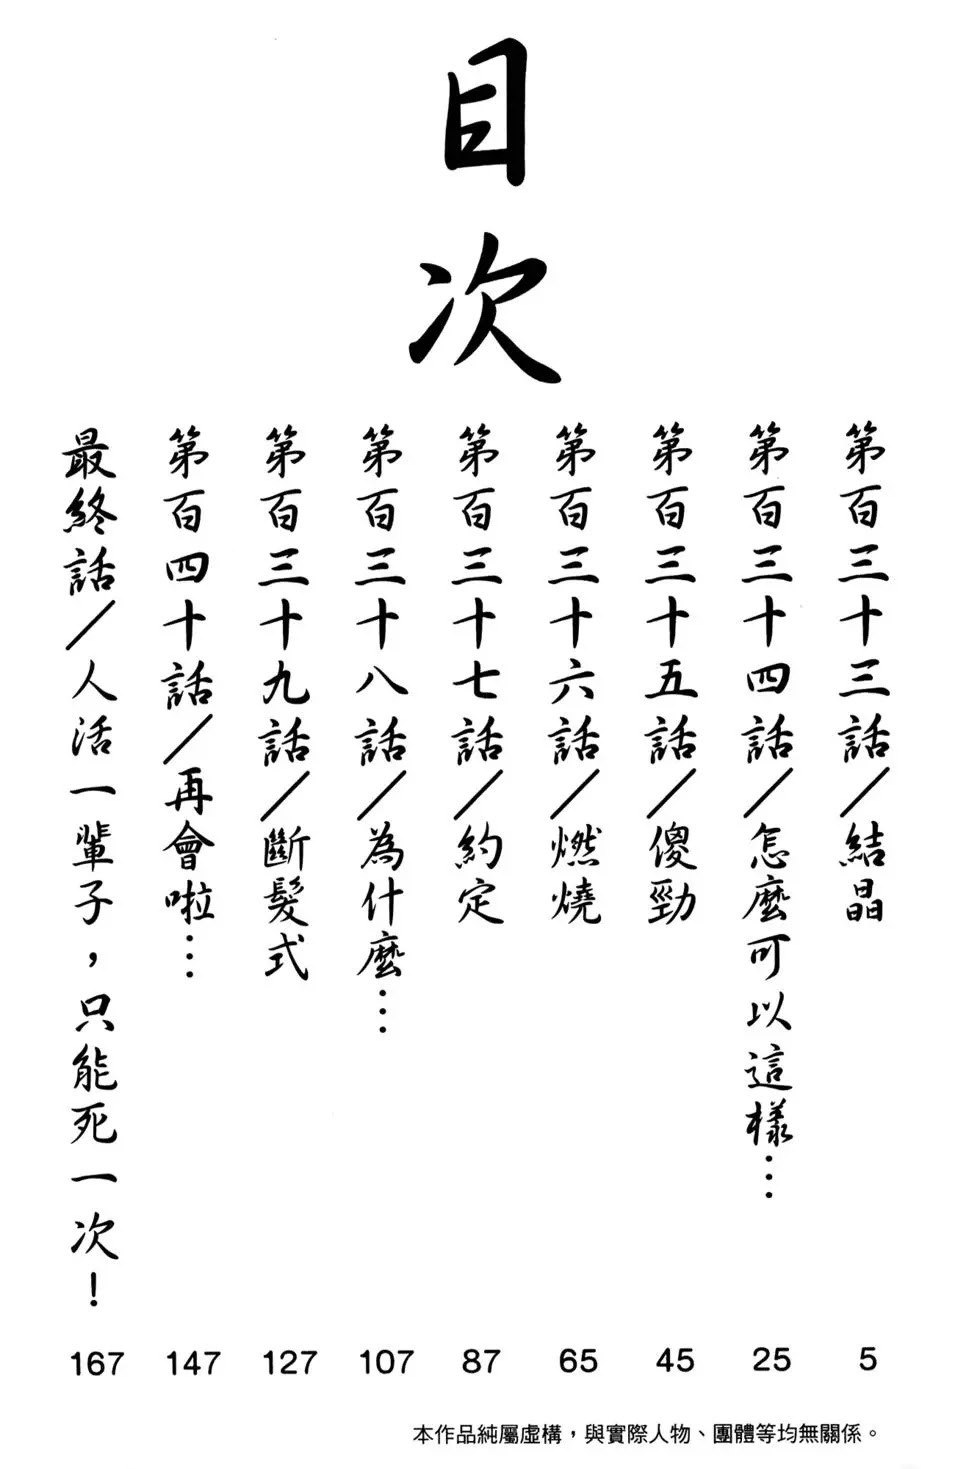 目次
第百三十三話／結晶 5
第百三十四話／怎麼可以這樣… 25
第百三十五話／傻勁 45
第百三十六話／燃燒 65
第百三十七話／約定 87
第百三十八話／為什麼… 107
第百三十九話／斷髮式 127
第百四十話／再會啦… 147
最終話／人活一輩子，只能死一次！ 167
本作品純屬虛構，與實際人物、團體等均無關係。